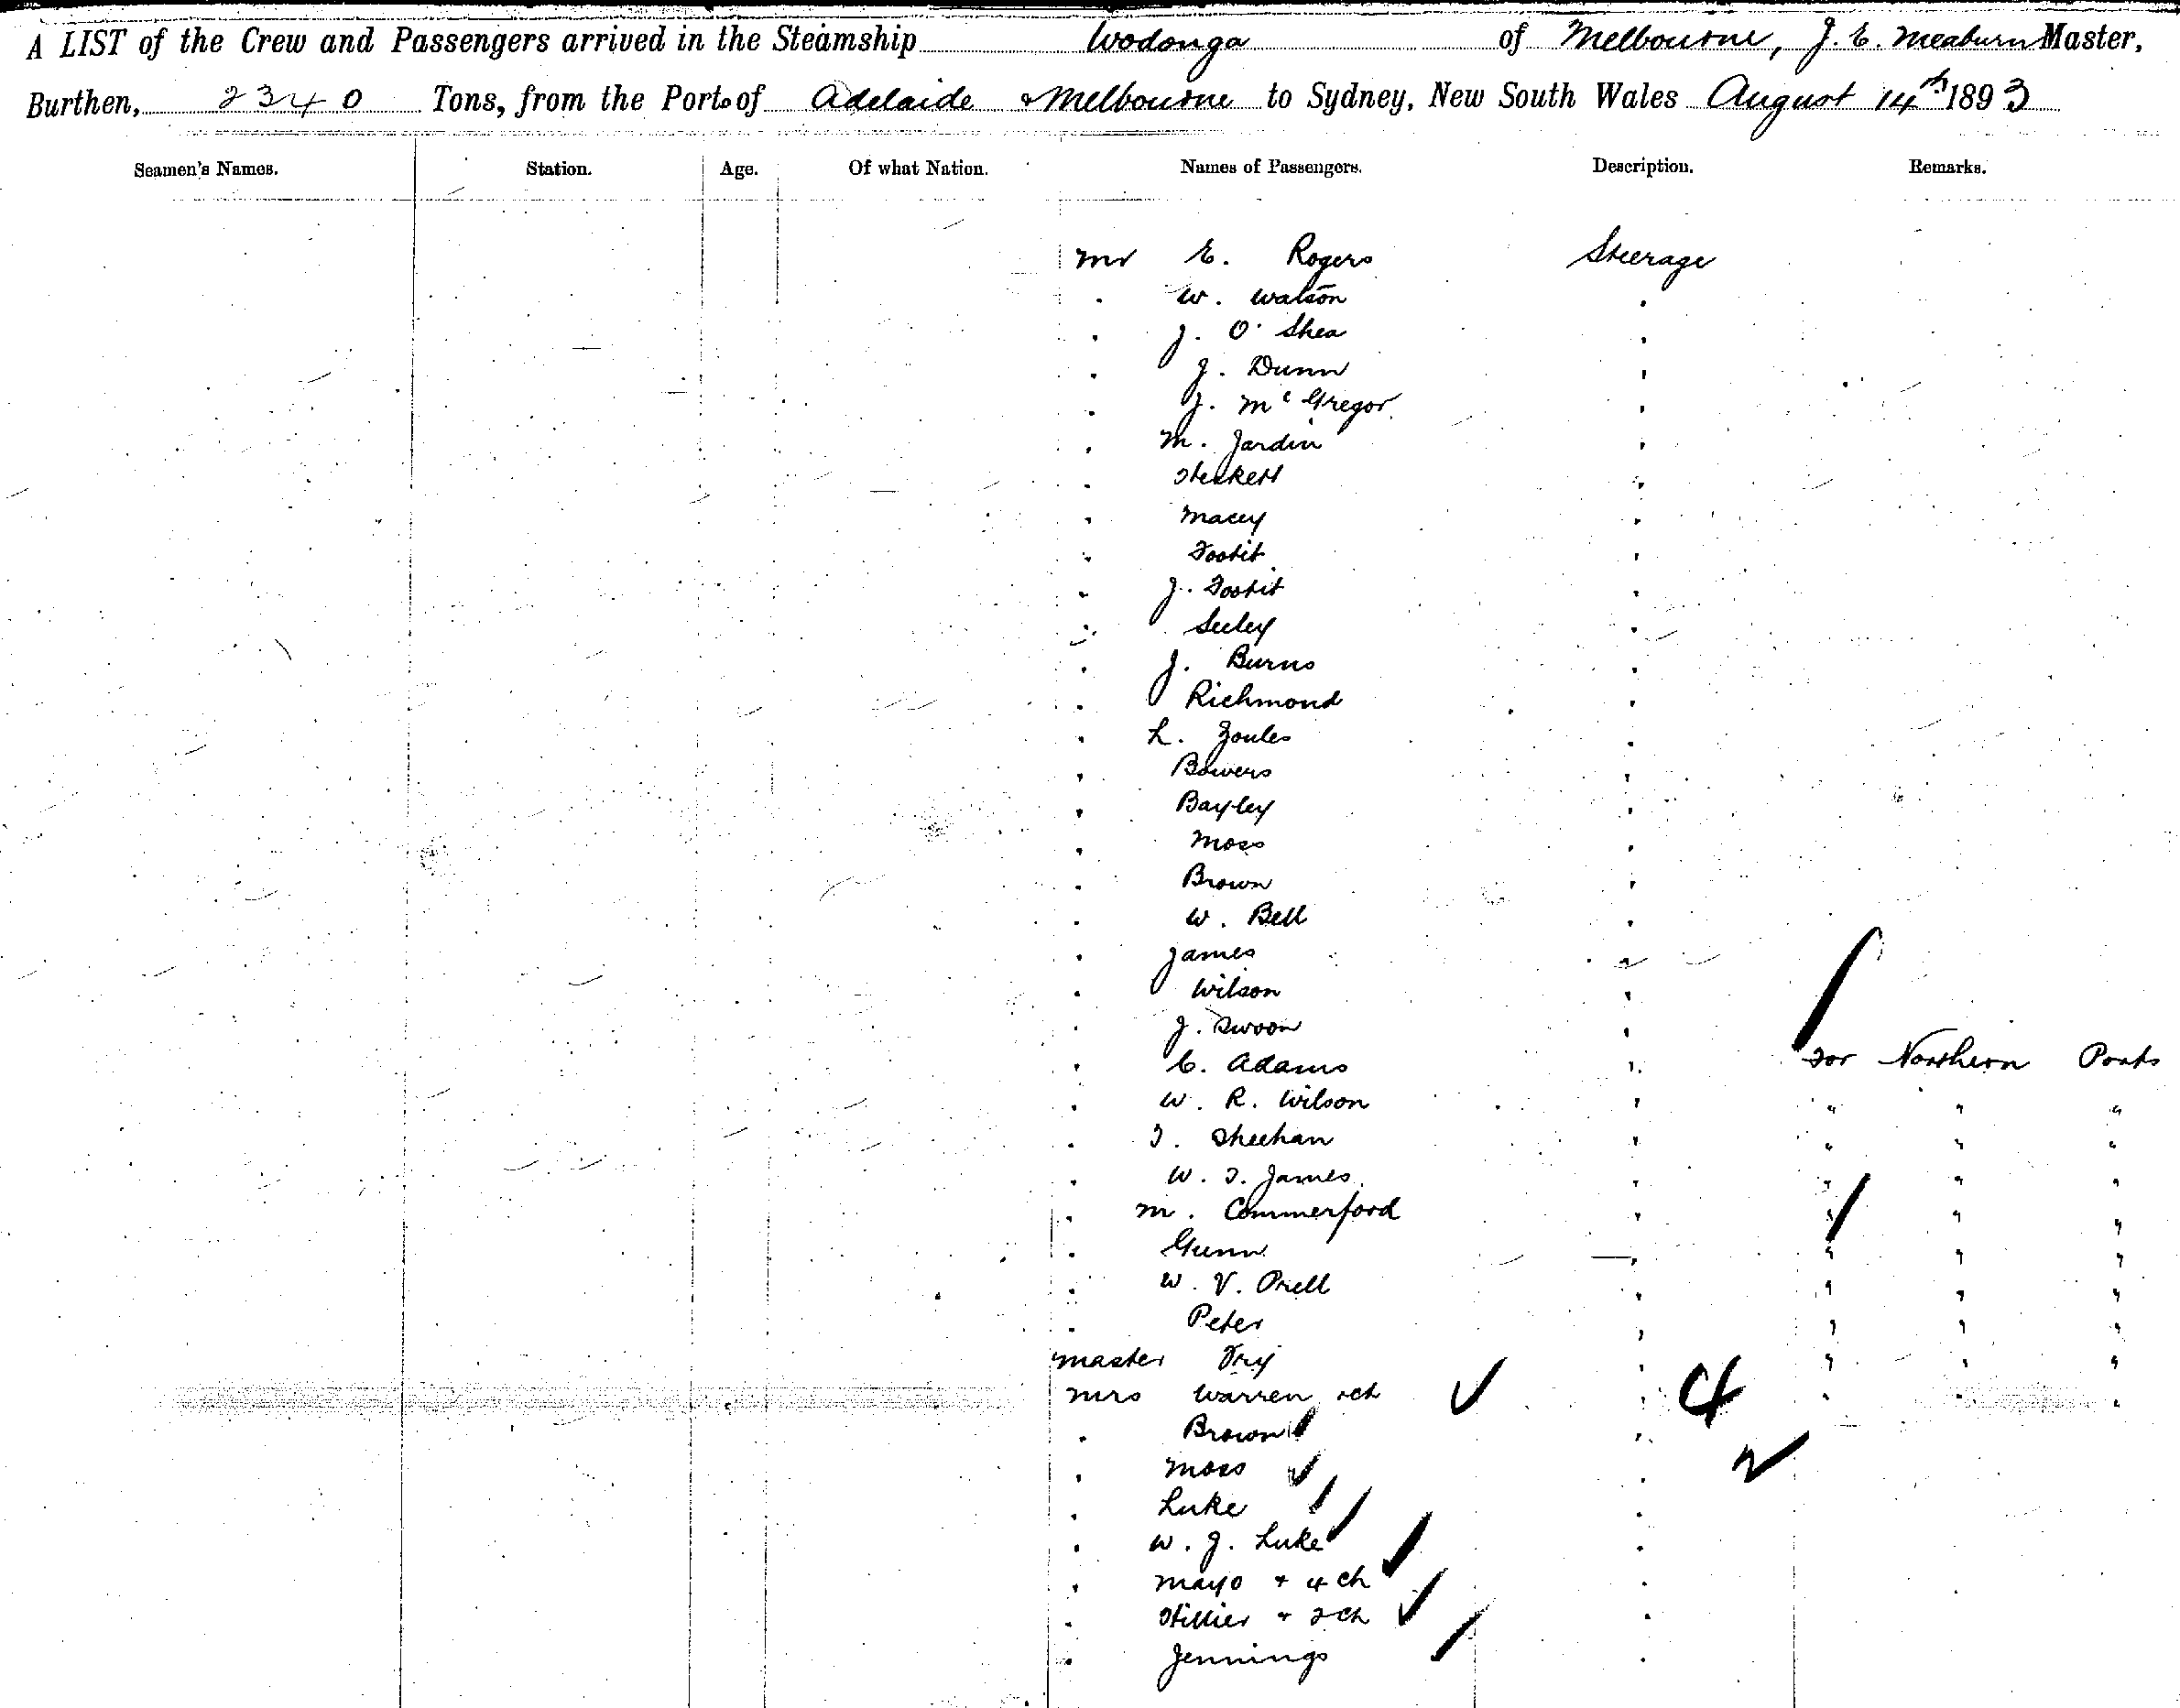 A LIST of the Crew and Passengers arrived in the Steamship Wodonga of Melbourne, J. E. Meaburn Master,
Burthen, 2340 Tons, from the Port of Adelaide & Melbourne to Sydney, New South Wales August 14th 1893
Seamen's Names. Station. Age. Of what Nation. Names of Passengers. Description. Remarks.
Mr E. Rogers Steerage
" W. Watson "
" J. O'Shea "
" J. Dunn "
" J. McGregor "
" M. Jardin "
" Heckett "
" Macey "
" Footit "
" J. Footit "
" Seeley "
" J. Burns "
" Richmond "
" L. Zoules "
" Bowers "
" Bayley "
" Moss "
" Brown "
" W. Bell "
" James "
" Wilson "
" J. Swoon "
" C. Adams " For Northern Ports
" W. R. Wilson " " " "
" T. Sheehan " " " "
" W. T. James " " " "
" M. Commerford " " " "
" Gunn " " " "
" W. V. Prell " " " "
" Peter " " " "
Master Fry " " " "
Mrs Warren & ch " 4 " " "
" Brown "
" Moss "
" Luke "
" W. J. Luke "
" Mayo + 4 ch "
" Hillier + 2 ch "
" Jennings "